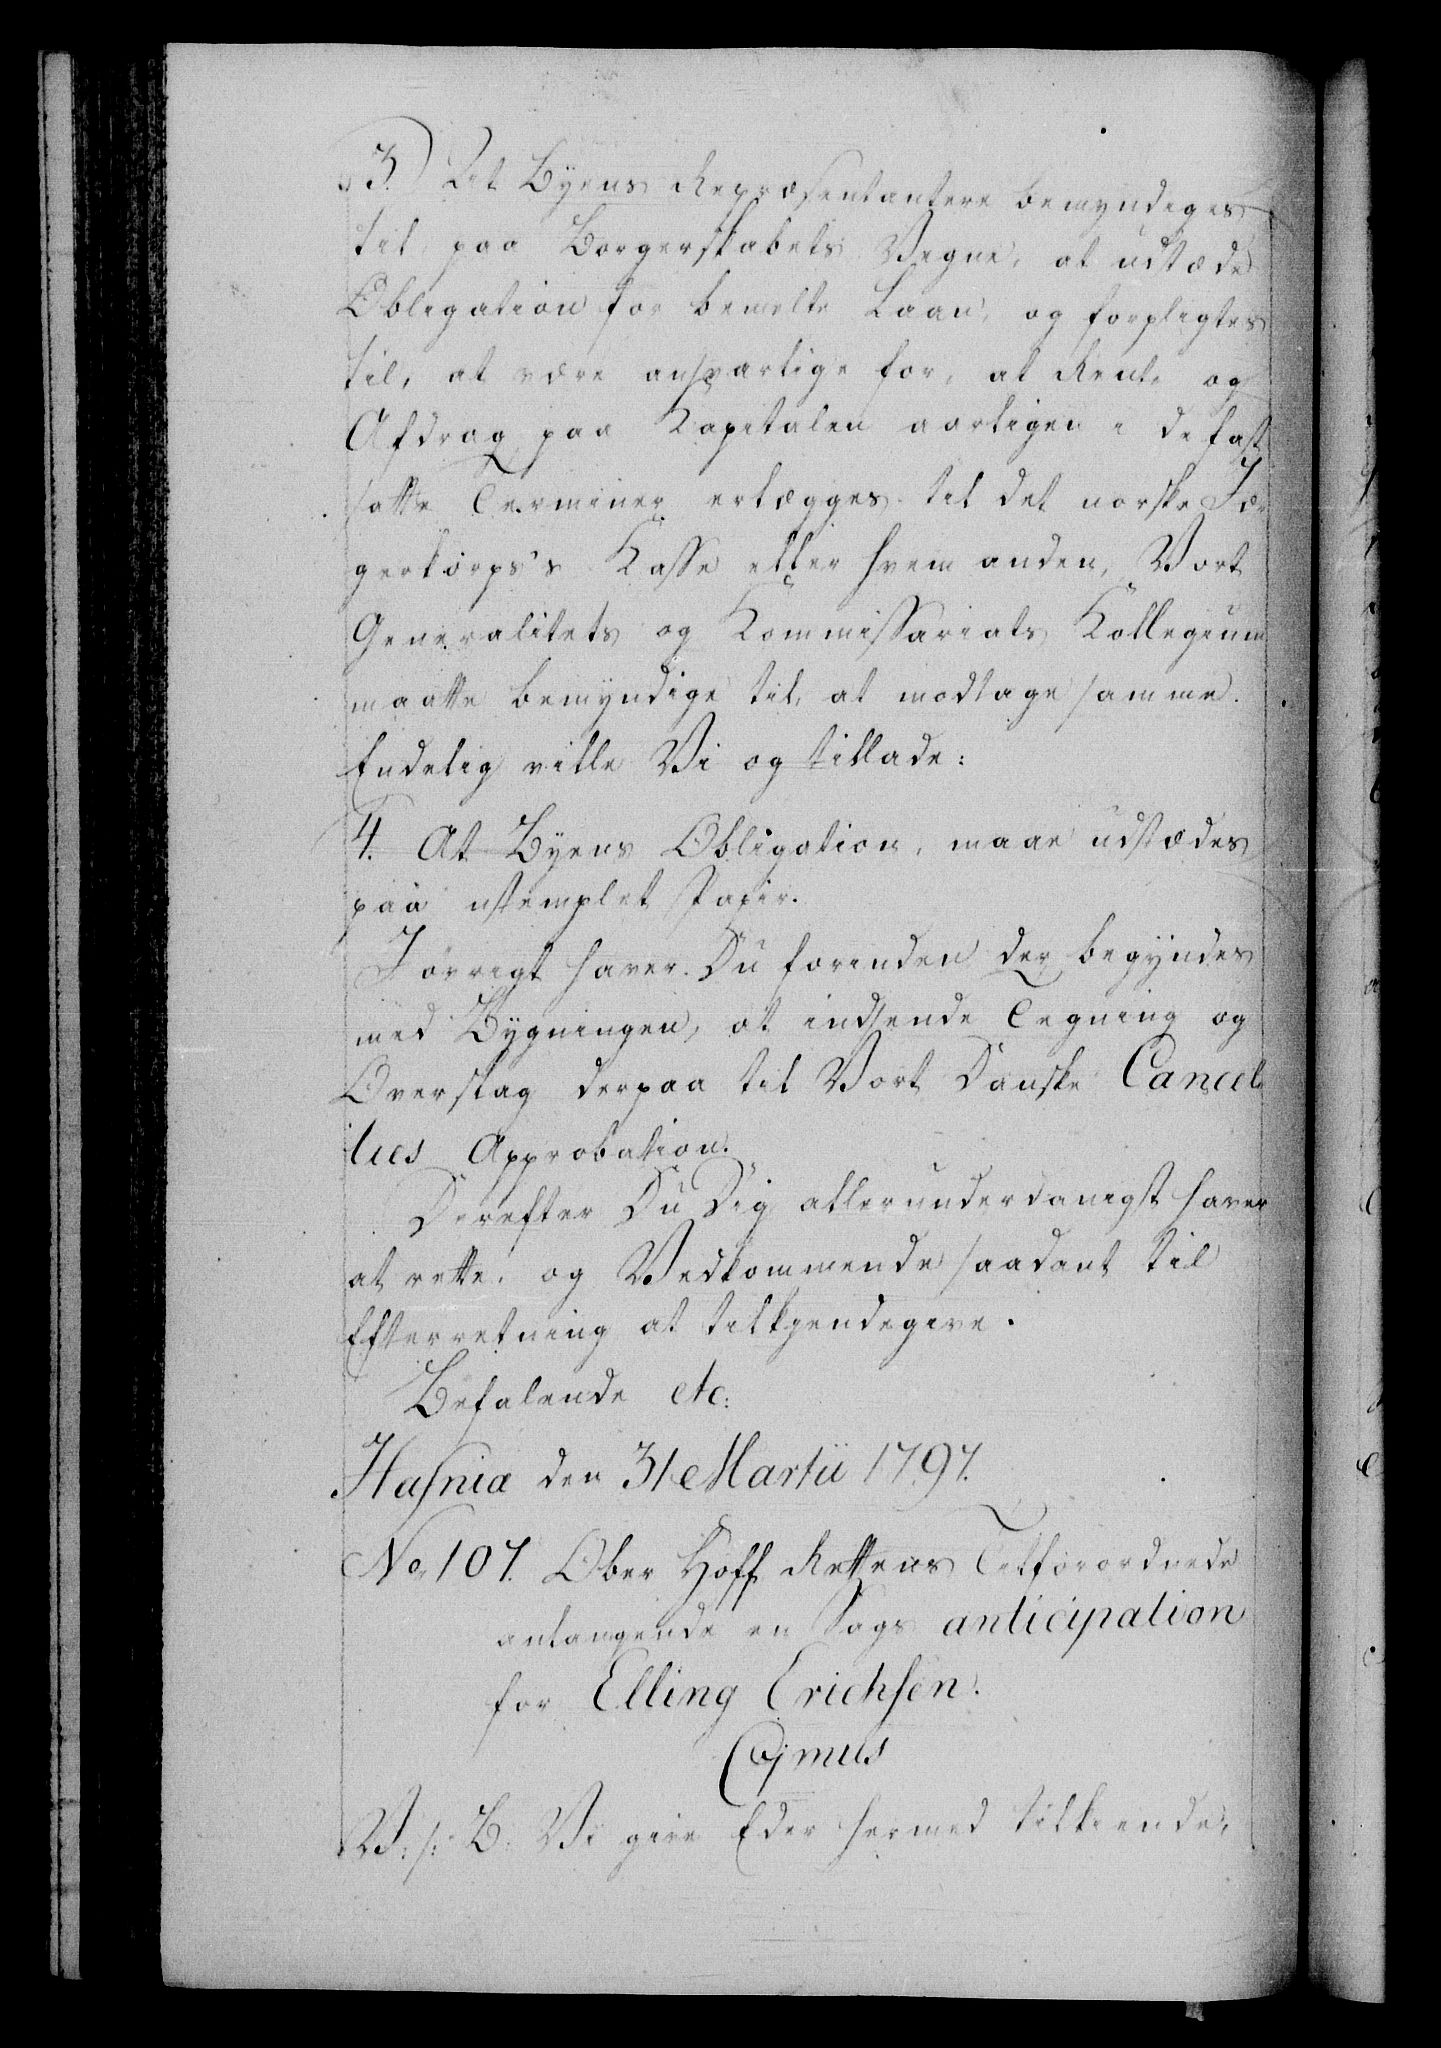 3.) At Byens Repræsentantere bemyndiges
til, paa Borgerskabets Vegne, at udstæde
Obligation for bemelte Laan, og forpligtes
til, at være ansvarlige for, at Rente og
Afdrag paa Kapitalen aarligen i de fast
satte Terminer erlægges til det norske Jæ
gerkorps's Kasse eller hvem anden, Vort
Generalitets og Kommissariats Kollegium
maatte bemyndige til, at modtage samme.
Endelig ville Vi og tillade:
4. At Byens Obligation, maae udstædes
paa ustemplet Papir.
Jøvrigt haver Du forinden der begyndes
med Bygningen, at indsende Tegning og
Overslag derpaa til Vort Danske Cancel
lies Approbation.
Derefter Du Dig allerunderdanigst haver
at rette, og Vedkommende saadant til
Efterretning at tilkjendegive.
Befalende etc:
Hafniæ den 31 Martii 1797.
No 107. Ober Hoff Rettens Tilforordnede
anlangende en Sags anticipation
for Elling Erichsen.
V: s: B: Vi give Eder hermed tilkiende,